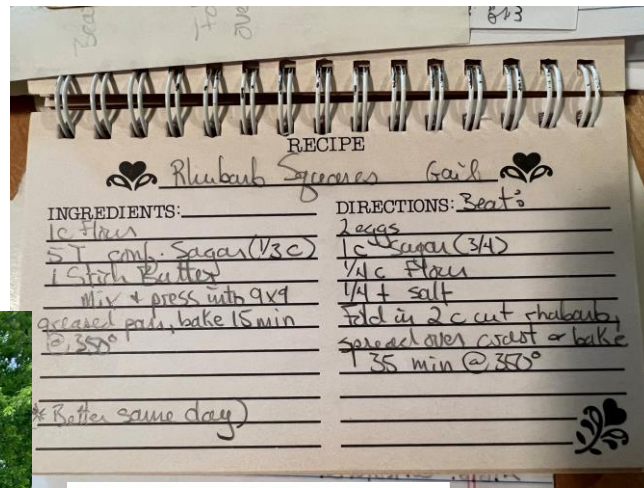 613
RECIPE
Rhubarb Squares Gail
INGREDIENTS:
1 c flour
5 T conf. Sugar (1/3 c)
1 Stick Butter
Mix & press into 9x9
greased pan, bake 15 min
@ 350°
* Better same day)
DIRECTIONS: Beat:
2 eggs
1 c sugar (3/4)
1/4 c flour
1/4 t salt
Fold in 2 c cut rhubarb,
spread over crust & bake
35 min @ 350°